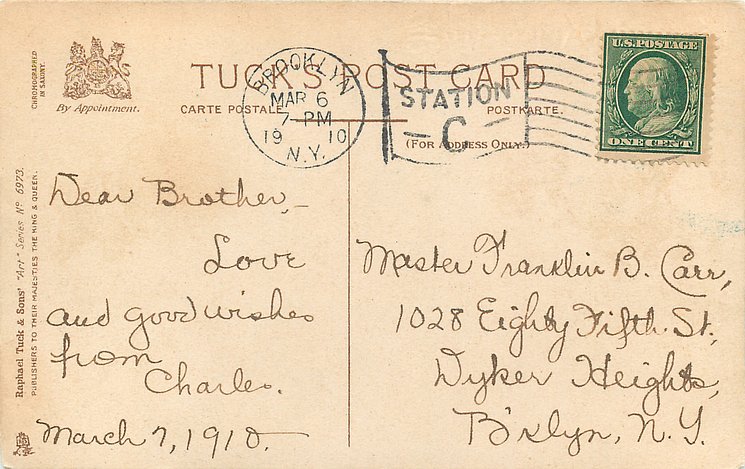 CHROMOGRAPHED
IN SAXONY.
By Appointment.
TUCK'S POST CARD
CARTE POSTALE
POSTKARTE.
(FOR ADDRESS ONLY.)
BROOKLYN
MAR 6
7-PM
1910
N.Y.
STATION
-C-
U.S. POSTAGE
ONE CENT
Raphael Tuck & Sons' "Art" Series Nº 6973.
PUBLISHERS TO THEIR MAJESTIES THE KING & QUEEN.
Dear Brother,-
Love
and good wishes
from
Charles.
March 7, 1910.
Master Franklin B. Carr,
1028 Eighty Fifth St,
Dyker Heights,
B'klyn, N.Y.